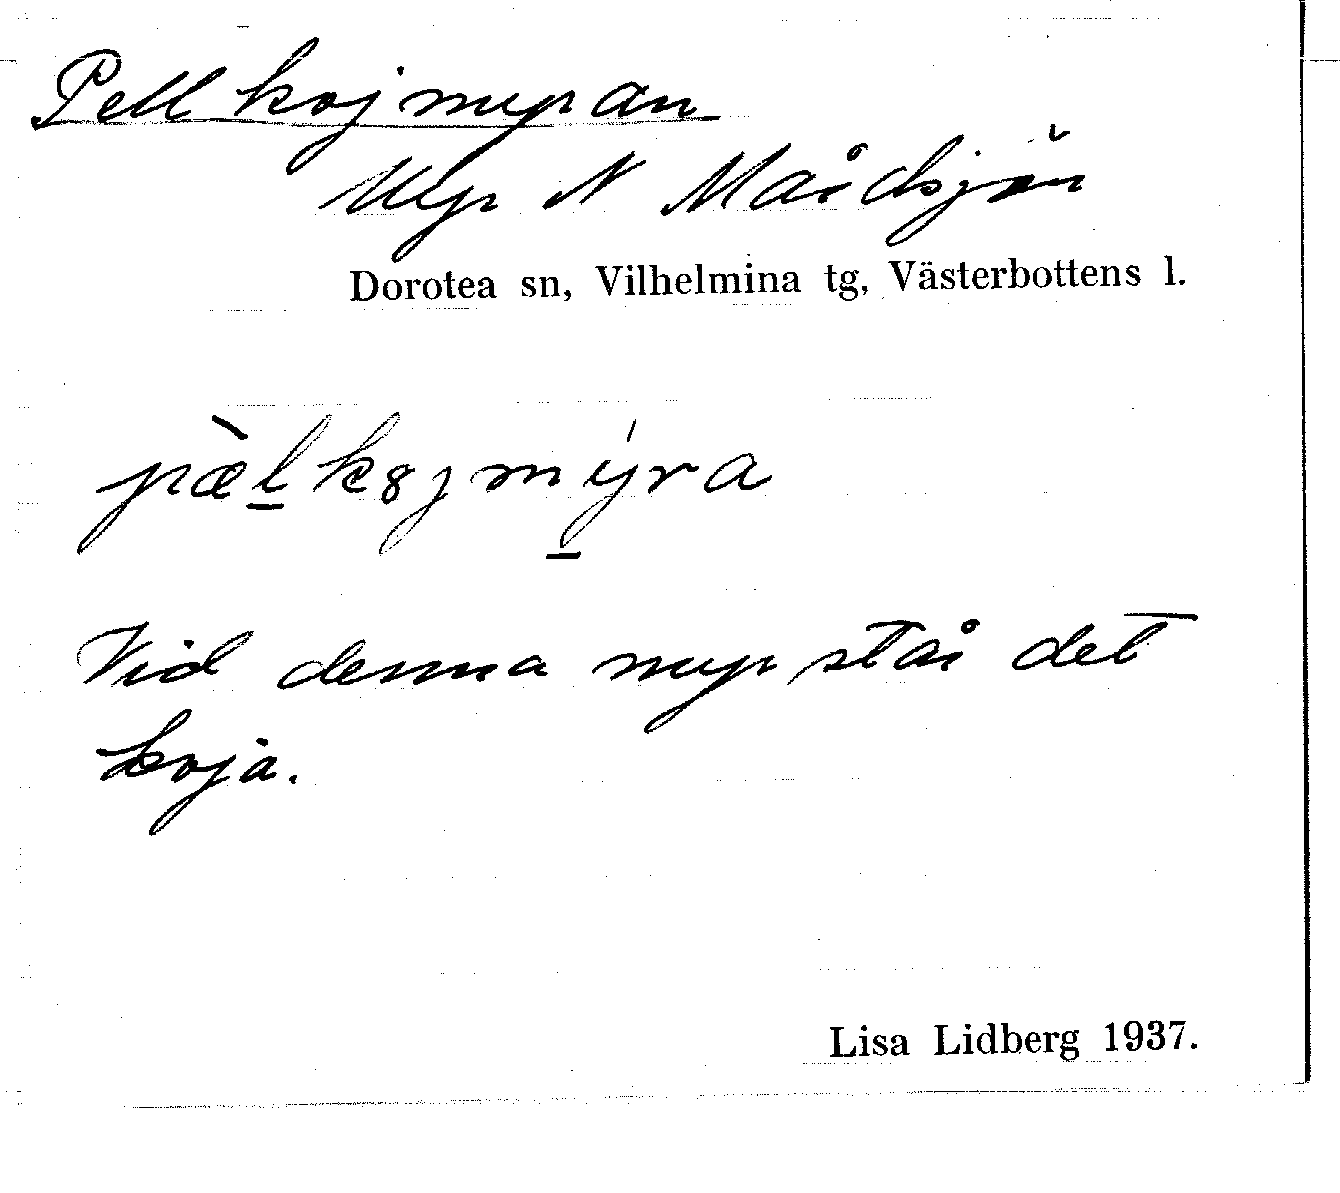 Pellkojmyran
Myr N Måidsjön
Dorotea sn, Vilhelmina tg, Västerbottens l.
pæ̀lk8jmýra
Vid denna myr står det
koja.
Lisa Lidberg 1937.